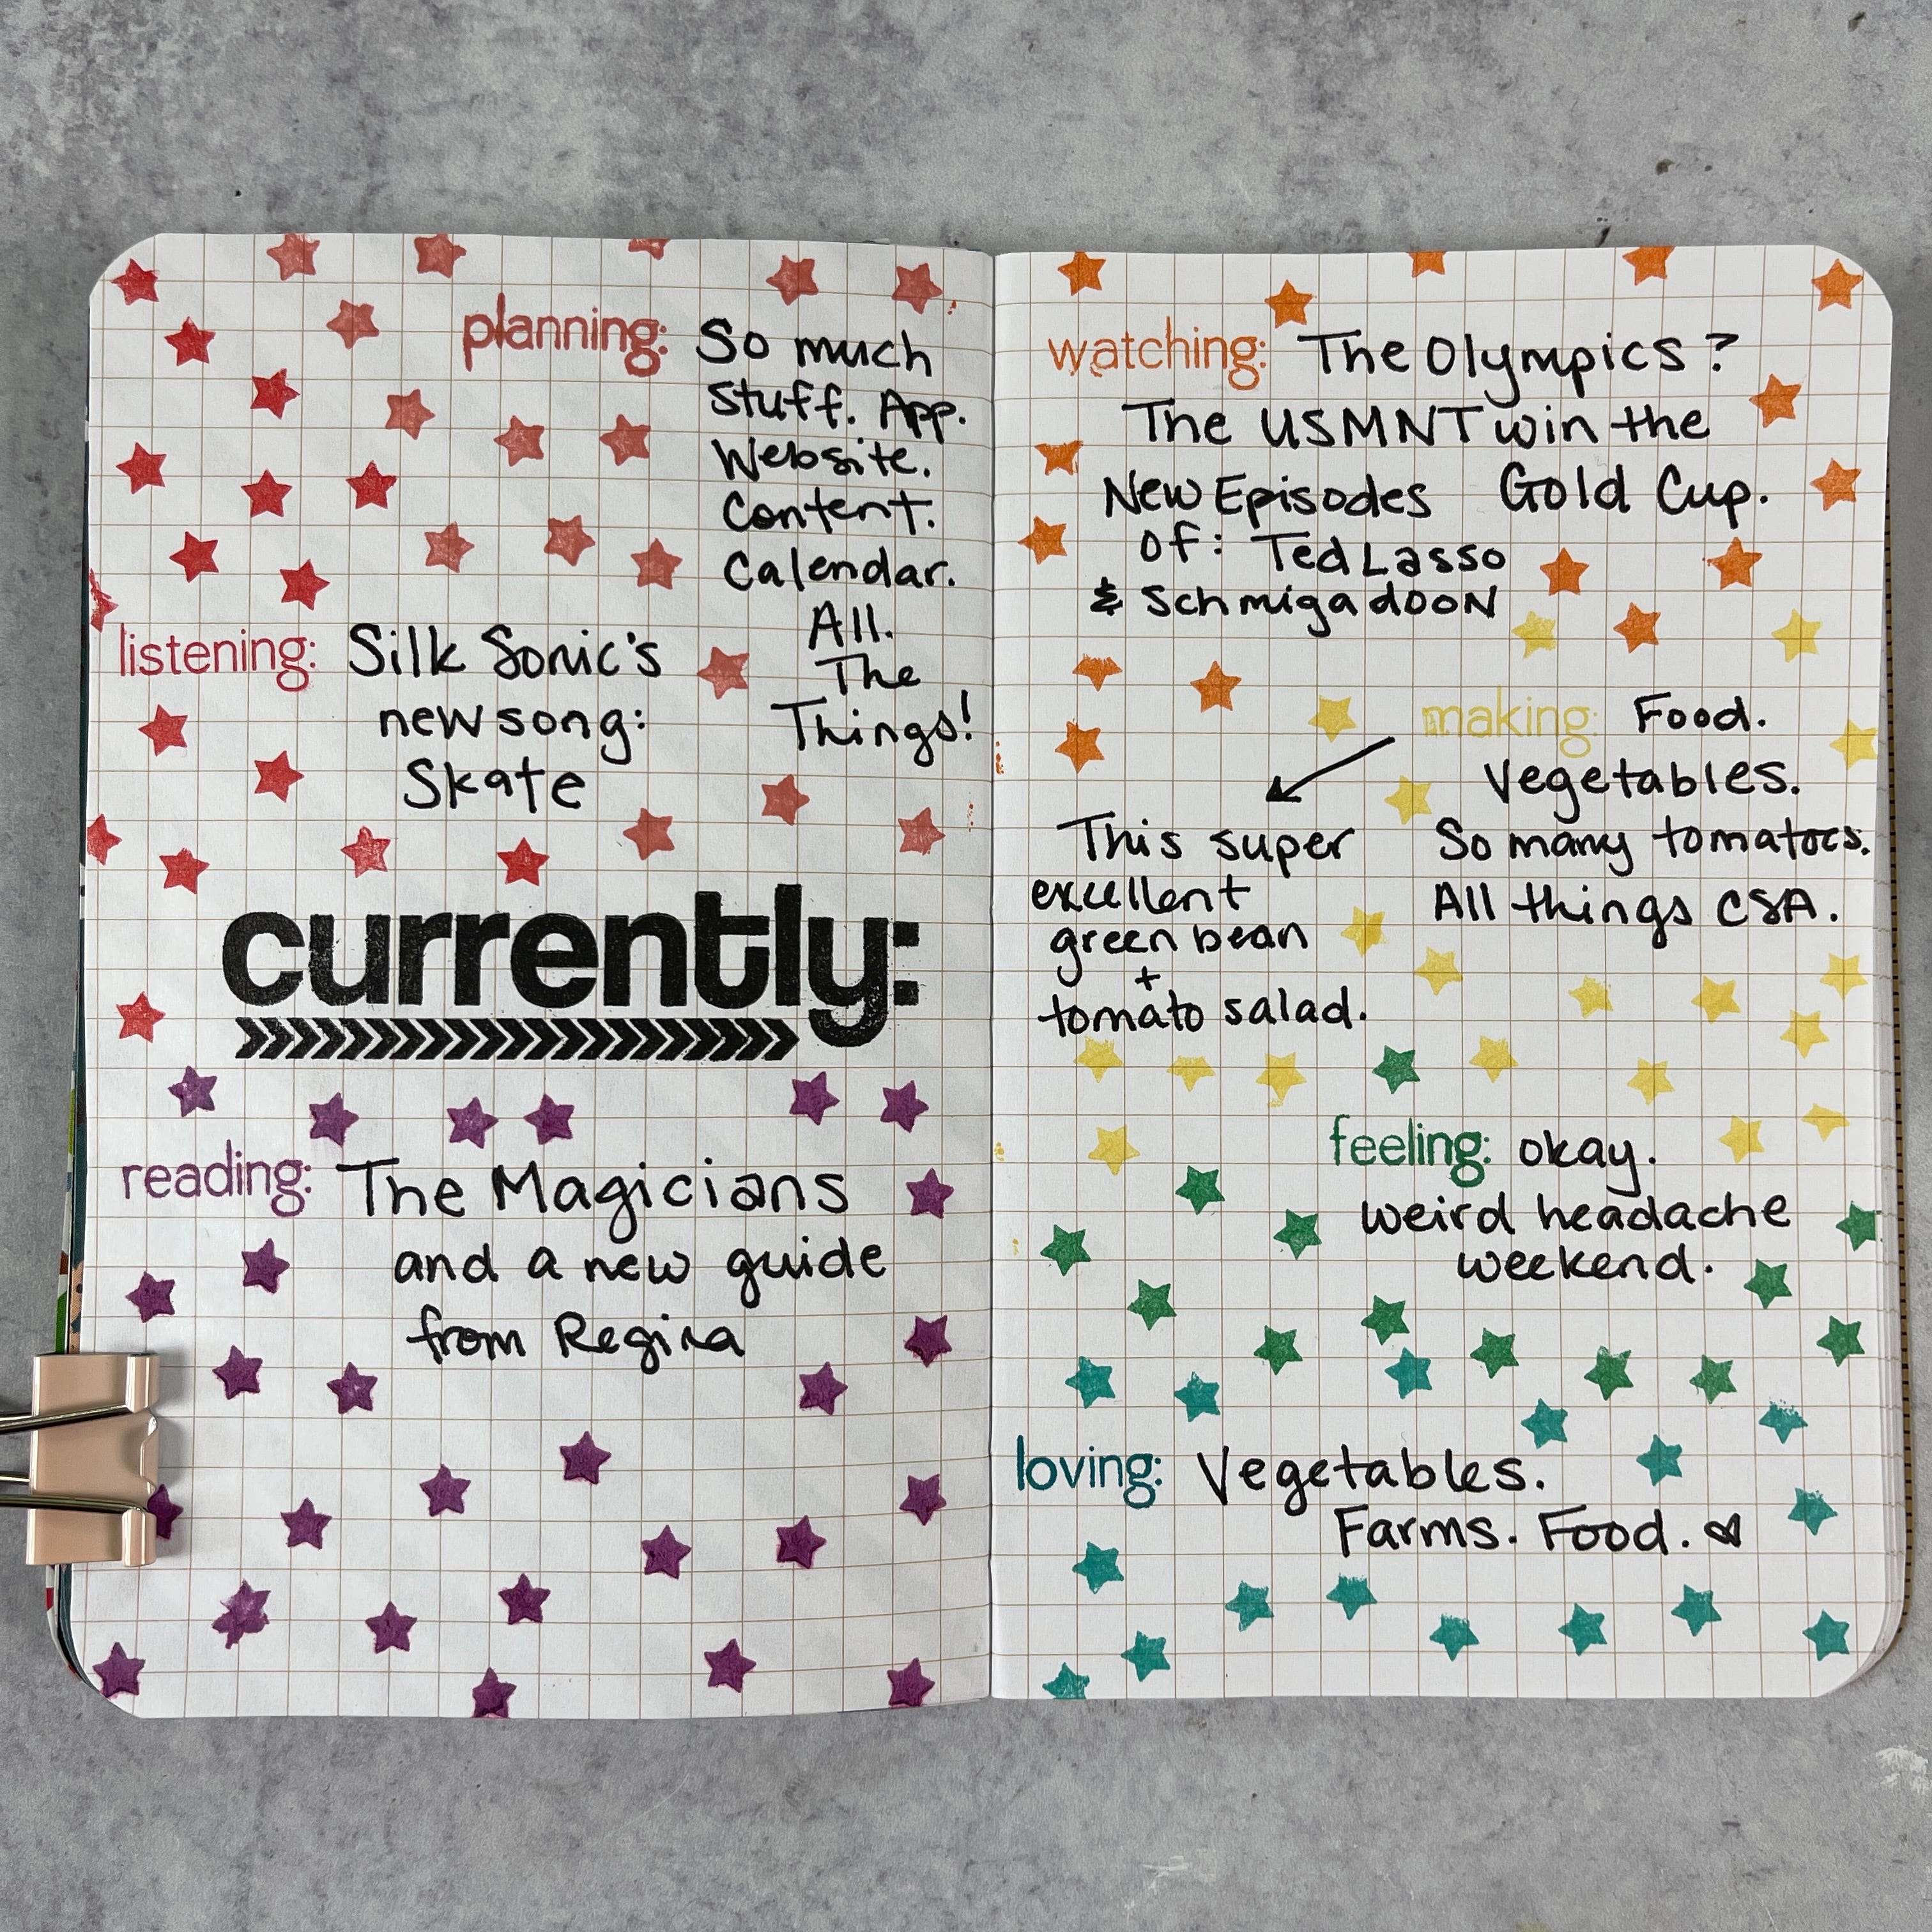 planning: So much
Stuff. App.
Website.
Content.
Calendar.
All.
The
Things!
listening: Silk Sonic's
new song:
Skate
currently:
reading: The Magicians
and a new guide
from Regina
watching: The Olympics?
The USMNT win the
Gold Cup.
New Episodes
of: Ted Lasso
& Schmigadoon
making: Food.
Vegetables.
So many tomatoes.
All things CSA.
This super
excellent
green bean
+
tomato salad.
feeling: okay.
weird headache
weekend.
loving: Vegetables.
Farms. Food.